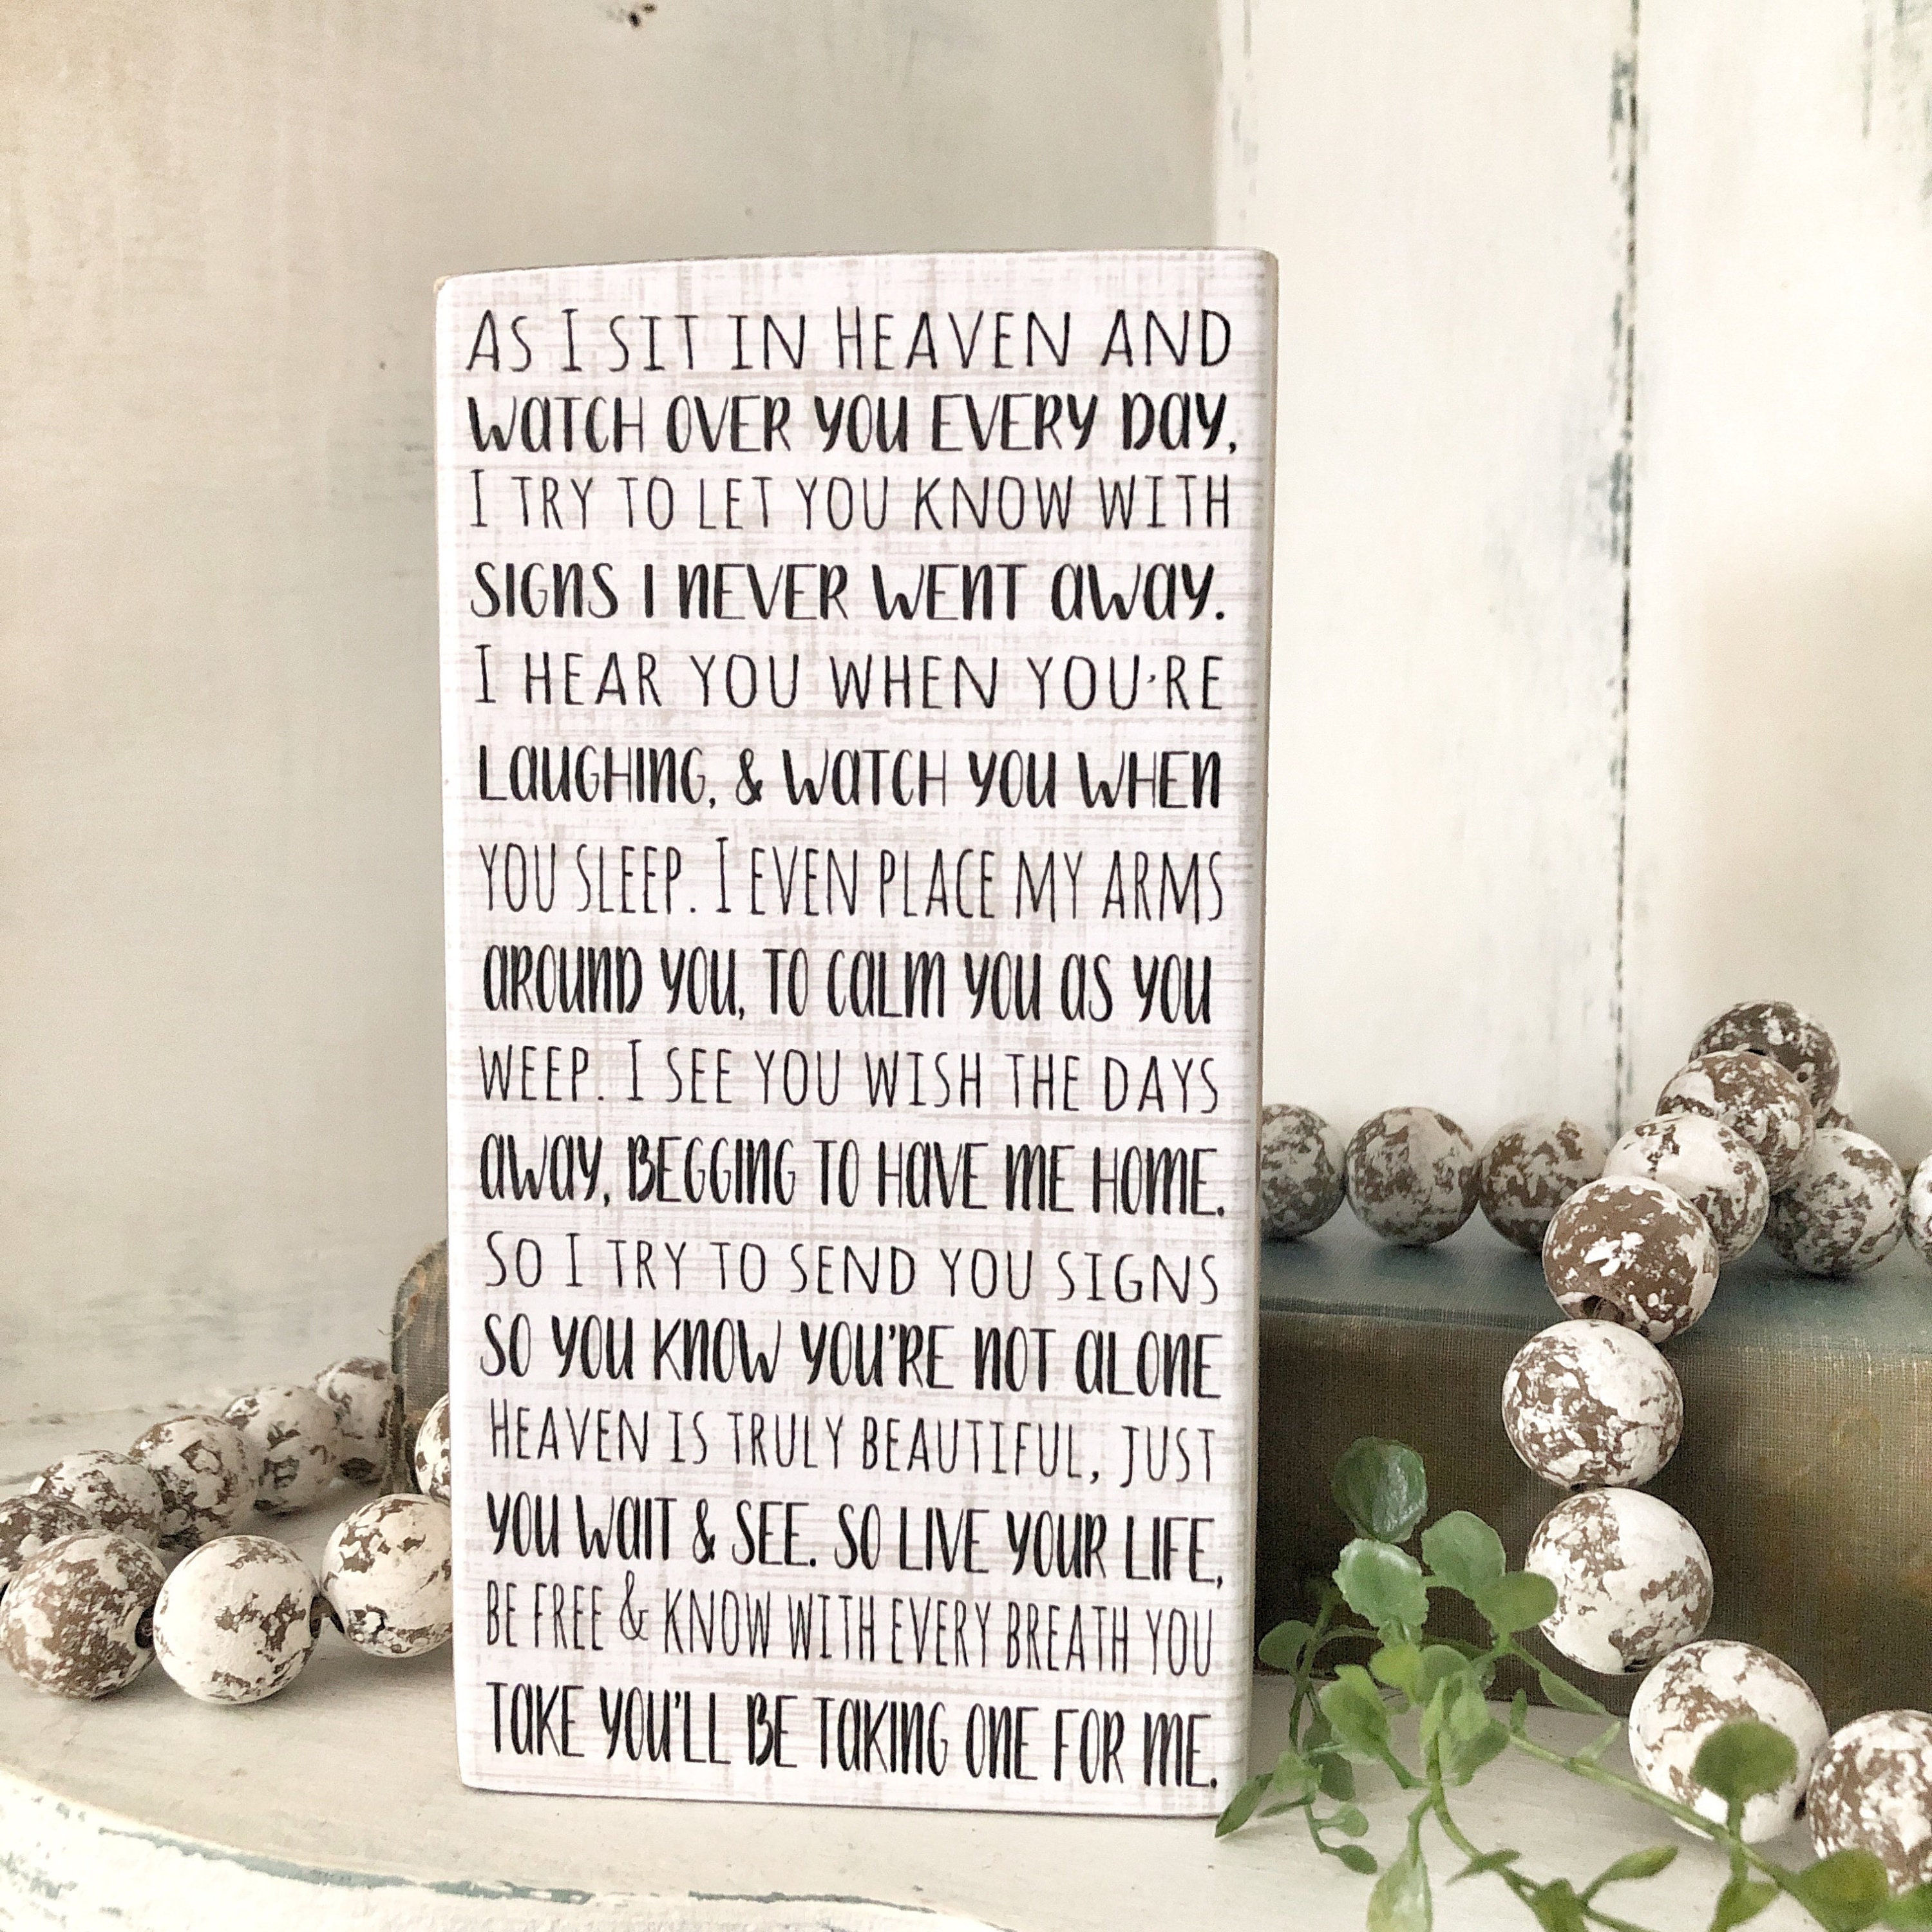 AS I SIT IN HEAVEN AND
WATCH OVER YOU EVERY DAY,
I TRY TO LET YOU KNOW WITH
SIGNS I NEVER WENT AWAY.
I HEAR YOU WHEN YOU'RE
LAUGHING, & WATCH YOU WHEN
YOU SLEEP. I EVEN PLACE MY ARMS
AROUND YOU, TO CALM YOU AS YOU
WEEP. I SEE YOU WISH THE DAYS
AWAY, BEGGING TO HAVE ME HOME.
SO I TRY TO SEND YOU SIGNS
SO YOU KNOW YOU'RE NOT ALONE
HEAVEN IS TRULY BEAUTIFUL, JUST
YOU WAIT & SEE. SO LIVE YOUR LIFE,
BE FREE & KNOW WITH EVERY BREATH YOU
TAKE YOU'LL BE TAKING ONE FOR ME.